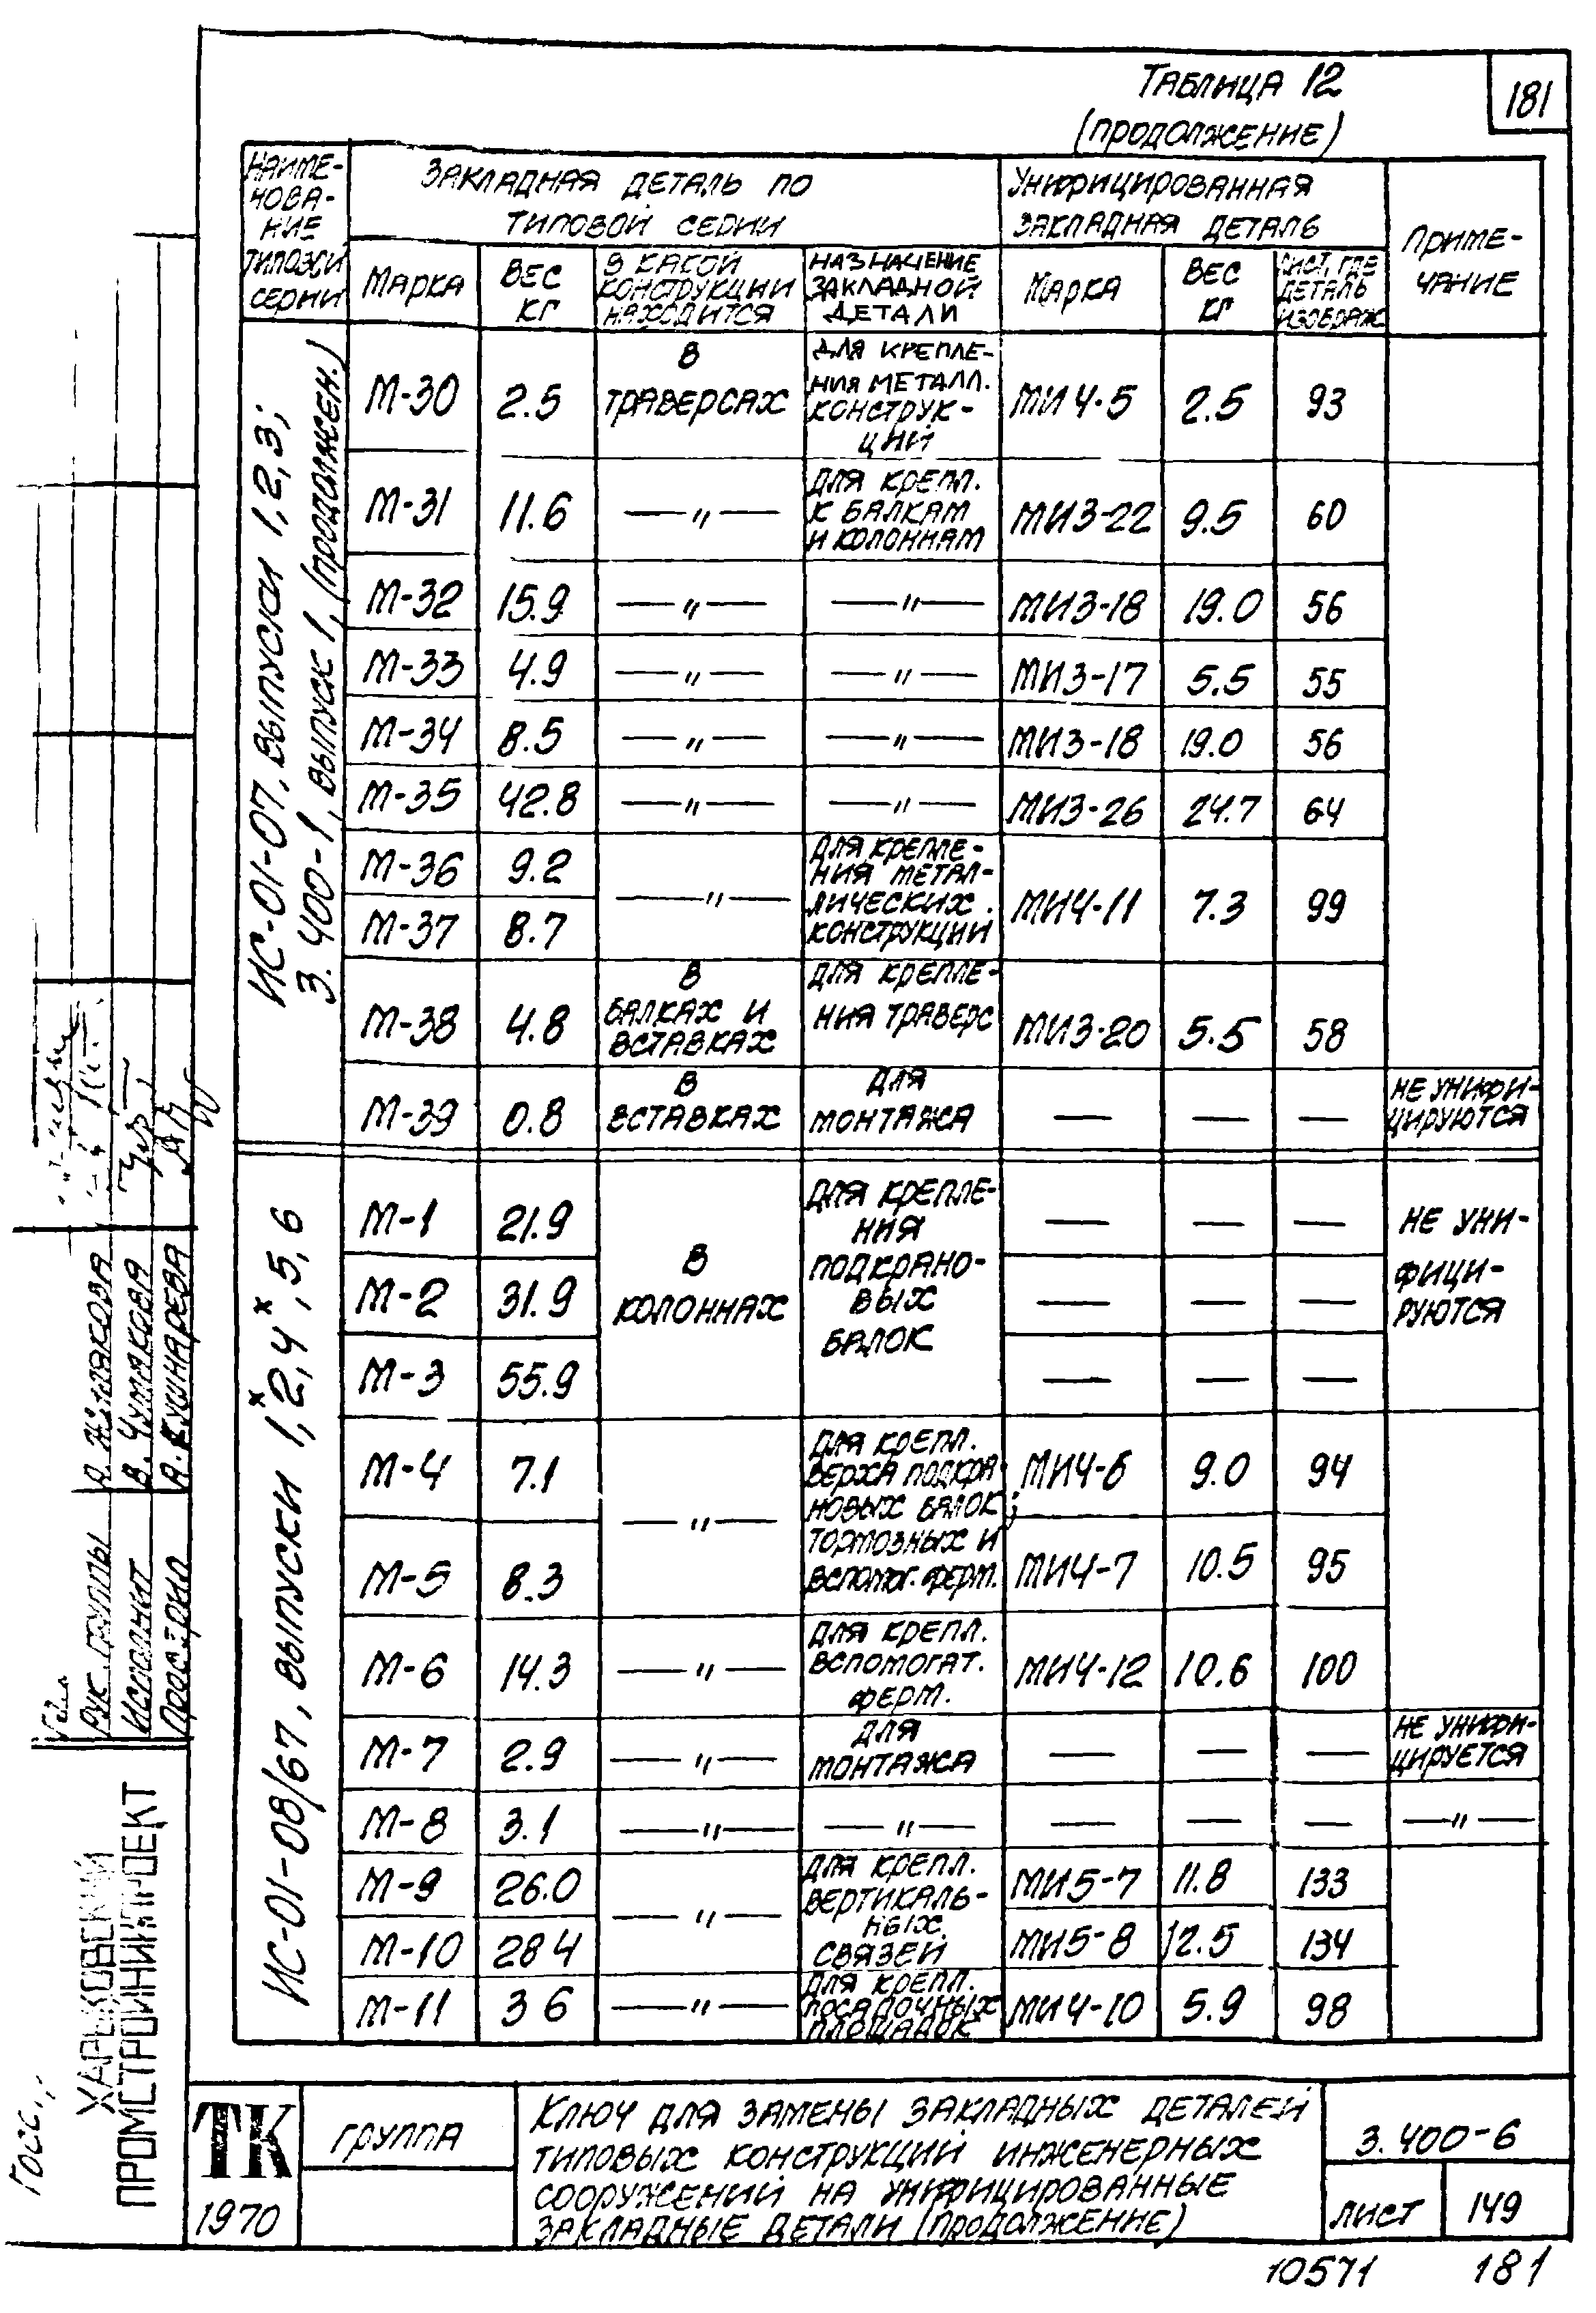 Таблица 12
(продолжение)
181
Наиме-
нова-
ние
типовой
серии
Закладная деталь по
типовой серии
Унифицированная
закладная деталь
Приме-
чание
Марка
Вес
кг
В какой
конструкции
находится
Назначение
закладной
детали
Марка
Вес
кг
Лист, где
деталь
изображ.
ИС-01-07, выпуски 1,2,3;
3.400-1, выпуск 1, (продолжен.)
М-30 2.5 В траверсах Для крепле-
ния металл.
конструк-
ций
МИ4-5 2.5 93
М-31 11.6 — " — Для крепл.
к балкам
и колоннам
МИ3-22 9.5 60
М-32 15.9 — " — — " — МИ3-18 19.0 56
М-33 4.9 — " — — " — МИ3-17 5.5 55
М-34 8.5 — " — — " — МИ3-18 19.0 56
М-35 42.8 — " — — " — МИ3-26 24.7 64
М-36 9.2
М-37 8.7
— " — Для крепле-
ния метал-
лических
конструкций
МИ4-11 7.3 99
М-38 4.8 В
балках и
вставках
Для крепле-
ния траверс
МИ3-20 5.5 58
М-39 0.8 В
вставках
Для
монтажа
— — — Не унифи-
цируются
ИС-01-08/67, выпуски 1х,2,4х,5,6
М-1 21.9 — — —
М-2 31.9 — — —
М-3 55.9 — — —
В
колоннах
Для крепле-
ния
подкрано-
вых
балок
Не уни-
фици-
руются
М-4 7.1 МИ4-6 9.0 94
М-5 8.3 МИ4-7 10.5 95
— " — Для крепл.
верха подкра-
новых балок;
тормозных и
вспомог. ферм.
М-6 14.3 — " — Для крепл.
вспомогат.
ферм.
МИ4-12 10.6 100
М-7 2.9 — " — Для
монтажа
— — — Не унифи-
цируется
М-8 3.1 — " — — " — — — — — " —
М-9 26.0 МИ5-7 11.8 133
М-10 28 4 МИ5-8 12.5 134
— " — Для крепл.
вертикаль-
ных
связей
М-11 3 6 — " — Для крепл.
посадочных
площадок
МИ4-10 5.9 98
Рук. группы
Исполнит В. Чумакова
Проверил А. Кушнарева
Госс
Харьковский
ПРОМСТРОЙНИИПРОЕКТ
ТК
1970
Группа
Ключ для замены закладных деталей
типовых конструкций инженерных
сооружений на унифицированные
закладные детали (продолжение)
3.400-6
Лист 149
10571 181